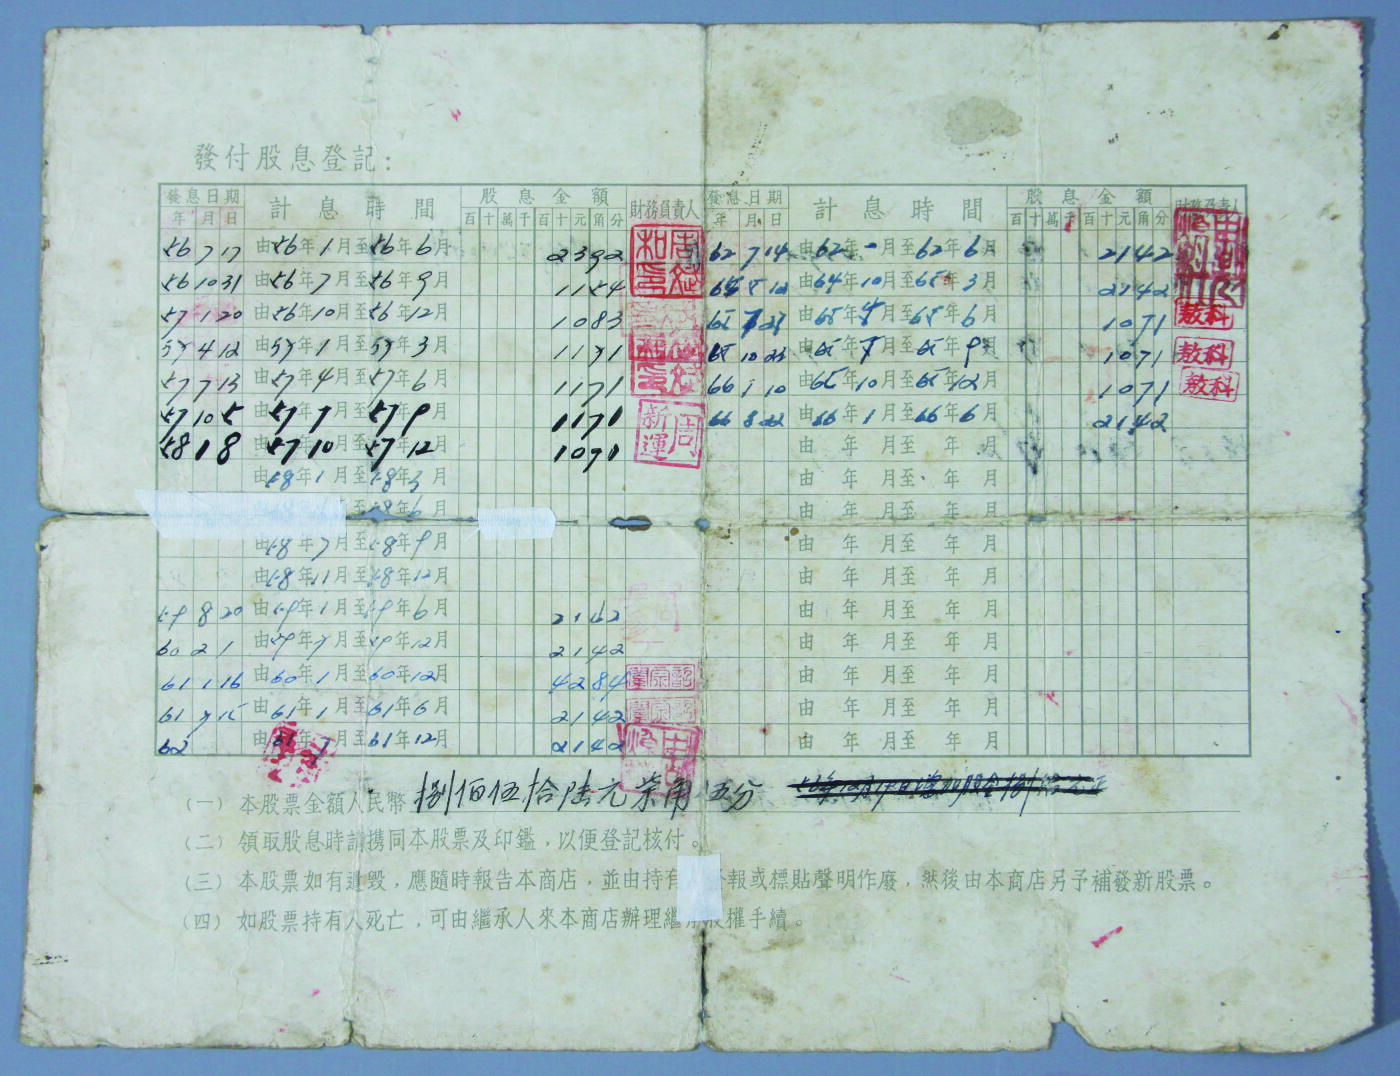 發付股息登記：
發息日期 計息時間 股息金額 財務負責人 發息日期 計息時間 股息金額 財務負責人
年 月 日 百 十 萬 千 百 十 元 角 分 年 月 日 百 十 萬 千 百 十 元 角 分
56 7 17 由56年1月至56年6月 2392 62 7 14 由62年一月至62年6月 2142
56 10 31 由56年7月至56年9月 1154 65 5 12 由64年10月至65年3月 2142
57 1 20 由56年10月至56年12月 1083 65 7 23 由65年4月至65年6月 1071
57 4 12 由57年1月至57年3月 1171 65 10 23 由65年7月至65年9月 1071
57 7 13 由57年4月至57年6月 1171 66 1 10 由65年10月至65年12月 1071
57 10 5 由57年7月至57年9月 1171 66 8 22 由66年1月至66年6月 2142
58 1 8 由57年10月至57年12月 1071 由 年 月至 年 月
由58年1月至58年3月 由 年 月至 年 月
58年6月 由 年 月至 年 月
由58年7月至58年9月 由 年 月至 年 月
由58年11月至58年12月 由 年 月至 年 月
59 8 20 由59年1月至59年6月 2162 由 年 月至 年 月
60 2 1 由59年7月至59年12月 2142 由 年 月至 年 月
61 1 16 由60年1月至60年12月 4284 由 年 月至 年 月
61 7 15 由61年1月至61年6月 2142 由 年 月至 年 月
62 由61年7月至61年12月 2142 由 年 月至 年 月
(一) 本股票金額人民幣 捌佰伍拾陸元柒角五分
(二) 領取股息時請携同本股票及印鑑，以便登記核付。
(三) 本股票如有遺毀，應隨時報告本商店，並由持有 報或標貼聲明作廢，然後由本商店另予補發新股票。
(四) 如股票持有人死亡，可由繼承人來本商店辦理繼承股權手續。